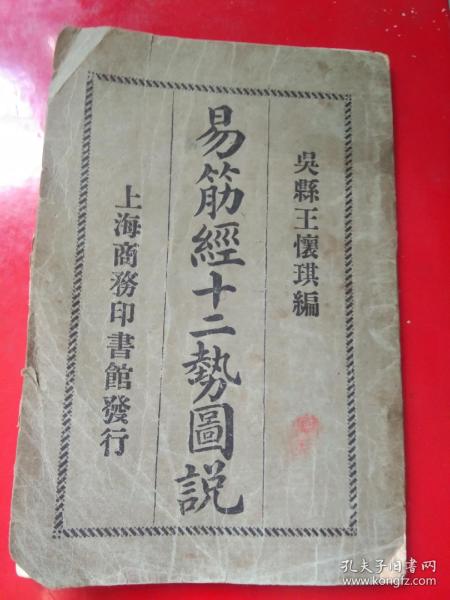 吳縣王懷琪編
易筋經十二勢圖説
上海商務印書館發行
孔夫子旧书网
www.kongfz.com